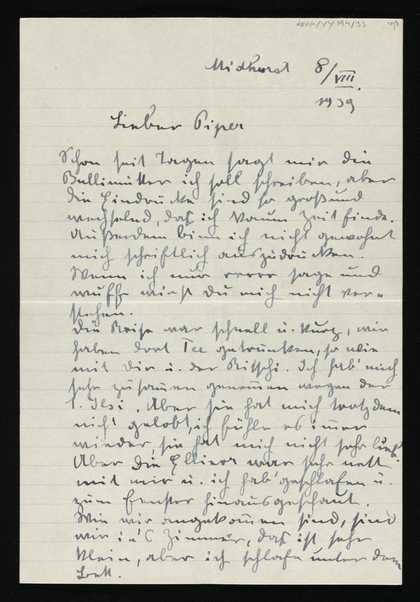 Midhurst 8/VIII.
1939
Lieber Piper
Schon seit Tagen sagt mir die
Bullimutter ich soll schreiben, aber
die Eindrücke sind so groß und
wechselnd, daß ich kaum Zeit finde.
Außerdem bin ich nicht gewohnt
mich schriftlich auszudrücken.
Wenn ich nur rrrrr sage und
wuff wirst Du mich nicht ver=
stehen.
Die Reise war schnell u. kurz, wir
haben dort Tee getrunken, so wie
mit Dir u. der Pitschi. Ich hab' mich
sehr zusammen genommen wegen der
T. Ilsi. Aber sie hat mich trotzdem
nicht gelobt, ich fühle es immer
wieder, sie hat mich nicht sehr lieb.
Aber die war sehr nett
mit mir u. ich hab' geschlafen u.
zum Fenster hinausgeschaut.
Wie wir angekommen sind, sind
wir in's Zimmer, das ist sehr
klein, aber ich schlafe unter dem
Bett.